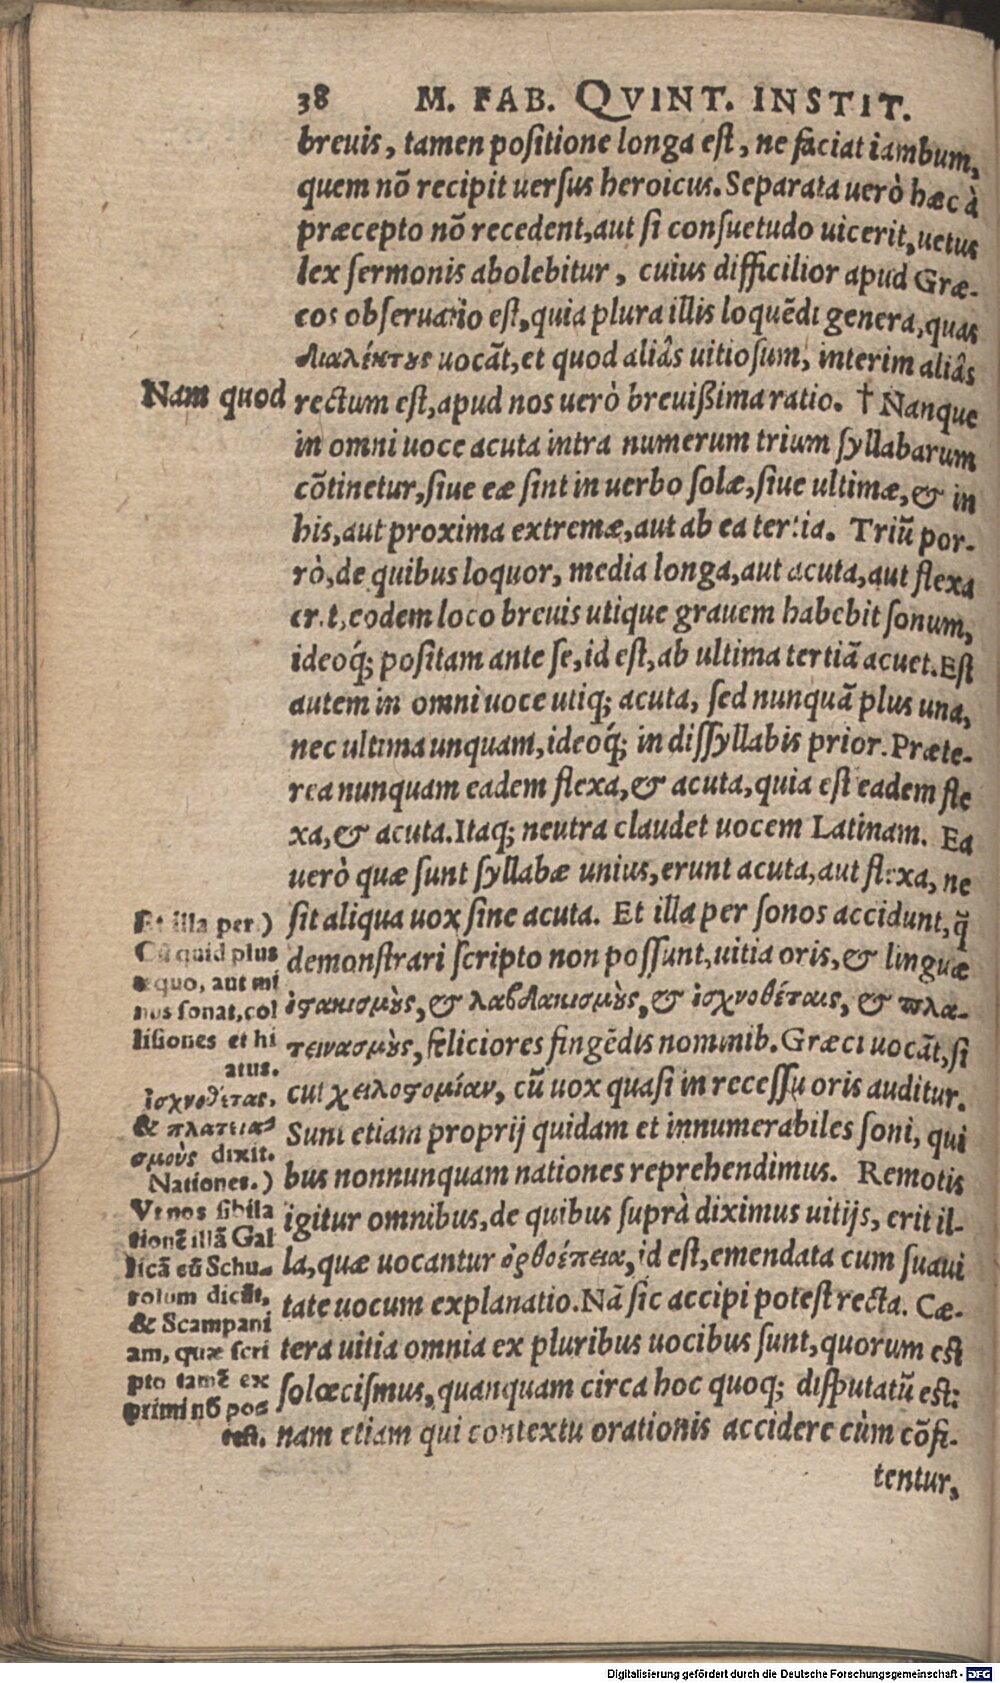 38 M. FAB. QVINT. INSTIT.
breuis, tamen positione longa est, ne faciat iambum,
quem nõ recipit uersus heroicus. Separata uerò hæc à
præcepto nõ recedent, aut si consuetudo uicerit, uetus
lex sermonis abolebitur, cuius difficilior apud Græ-
cos obseruatio est, quia plura illis loquẽdi genera, quas
διαλέκτους uocãt, et quod aliâs uitiosum, interim aliâs
rectum est, apud nos uerò breuißima ratio. † Nanque
in omni uoce acuta intra numerum trium syllabarum
cõtinetur, siue eæ sint in uerbo solæ, siue ultimæ, & in
his, aut proxima extremæ, aut ab ea tertia. Triũ por-
rò, de quibus loquor, media longa, aut acuta, aut flexa
erit, eodem loco breuis utique grauem habebit sonum,
ideoq́; positam ante se, id est, ab ultima tertiã acuet. Est
autem in omni uoce utiq; acuta, sed nunquã plus una,
nec ultima unquam, ideoq́; in dissyllabis prior. Præte-
rea nunquam eadem flexa, & acuta, quia est eadem fle
xa, & acuta. Itaq; neutra claudet uocem Latinam. Ea
uerò quæ sunt syllabæ unius, erunt acuta, aut flexa, ne
sit aliqua uox sine acuta. Et illa per sonos accidunt, q̃
demonstrari scripto non possunt, uitia oris, & linguæ
ἰωτακισμοὺς, & λαβδακισμοὺς, & ἰσχνοθέταις, & πλα-
τειυασμοὺς, feliciores fingẽdis nominib. Græci uocãt, si
cut χειλοστομίαν, cũ uox quasi in recessu oris auditur.
Sunt etiam proprij quidam et innumerabiles soni, qui
bus nonnunquam nationes reprehendimus. Remotis
igitur omnibus, de quibus suprà diximus uitijs, erit il-
la, quæ uocantur ὀρθοέπεια, id est, emendata cum suaui
tate uocum explanatio. Nã sic accipi potest recta. Cæ-
tera uitia omnia ex pluribus uocibus sunt, quorum est
solœcismus, quanquam circa hoc quoq; disputatũ est:
nam etiam qui contextu orationis accidere cùm cõfi-
tentur,
Nam quod
Et illa per.)
Cũ quid plus
æquo, aut mi
nus sonat, col
lisiones et hi
atus.
ἰσχνοθέτας,
& πλατεια⸗
σμοὺς dixit.
Nationes.)
Vt nos sibila
tionẽ illã Gal
licã eũ Schu⸗
rolum dicũt,
& Scampani
am, quæ scri
pto tamẽ ex
primi nõ pos
test.
Digitalisierung gefördert durch die Deutsche Forschungsgemeinschaft - DFG